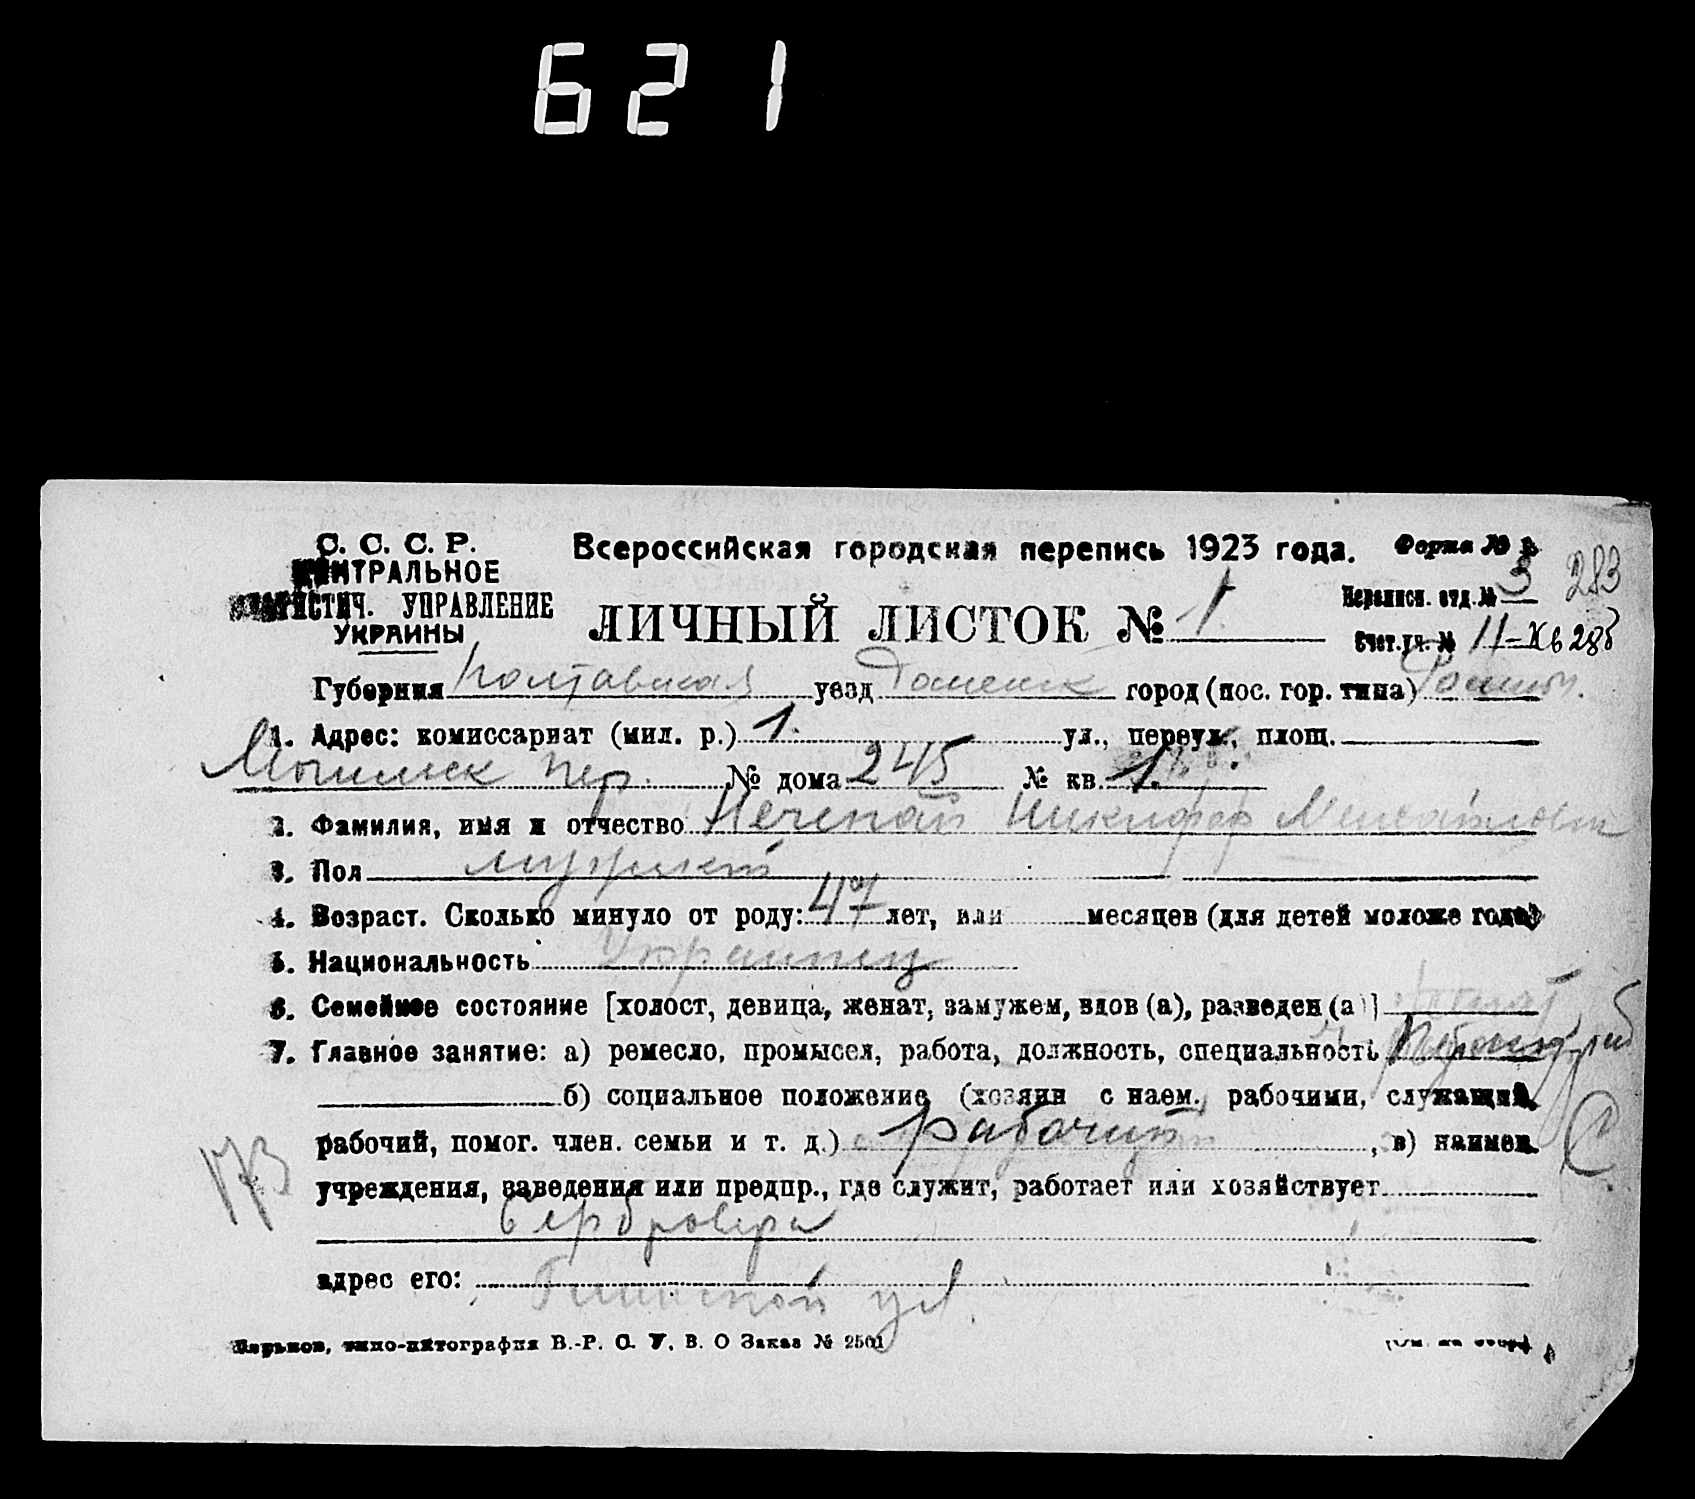 621
С. С. С. Р.
ЦЕНТРАЛЬНОЕ
СТАТИСТИЧ. УПРАВЛЕНИЕ
УКРАИНЫ
Всероссийская городская перепись 1923 года.
Форма №
ЛИЧНЫЙ ЛИСТОК № 1.
Переписн. отд. № 3 283
Счет. уч. № 11
Губерния Полтавская уезд город (пос. гор. типа)
1. Адрес: комиссариат (мил. р.) 1. ул., переул., площ.
пер. № дома 245 № кв. 1.
2. Фамилия, имя и отчество Нечепай Никифор
3. Пол мужской
4. Возраст. Сколько минуло от роду: 47 лет, или месяцев (для детей моложе года)
5. Национальность Украинец
6. Семейное состояние [холост, девица, женат, замужем, вдов (а), разведен (а)] женат
7. Главное занятие: а) ремесло, промысел, работа, должность, специальность
б) социальное положение (хозяин с наем. рабочими, служащий,
рабочий, помог. член. семьи и т. д.) рабочий, в) наимен.
173
учреждения, заведения или предпр., где служит, работает или хозяйствует
адрес его: ул.
Харьков, типо-литография В.-Р. С. У. В. О Заказ № 2501